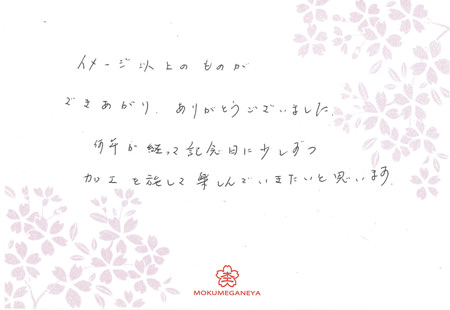 イメージ以上のものが
できあがり、ありがとうございました。
何年か経って記念日に少しずつ
加工を施して楽しんでいきたいと思います。
MOKUMEGANEYA